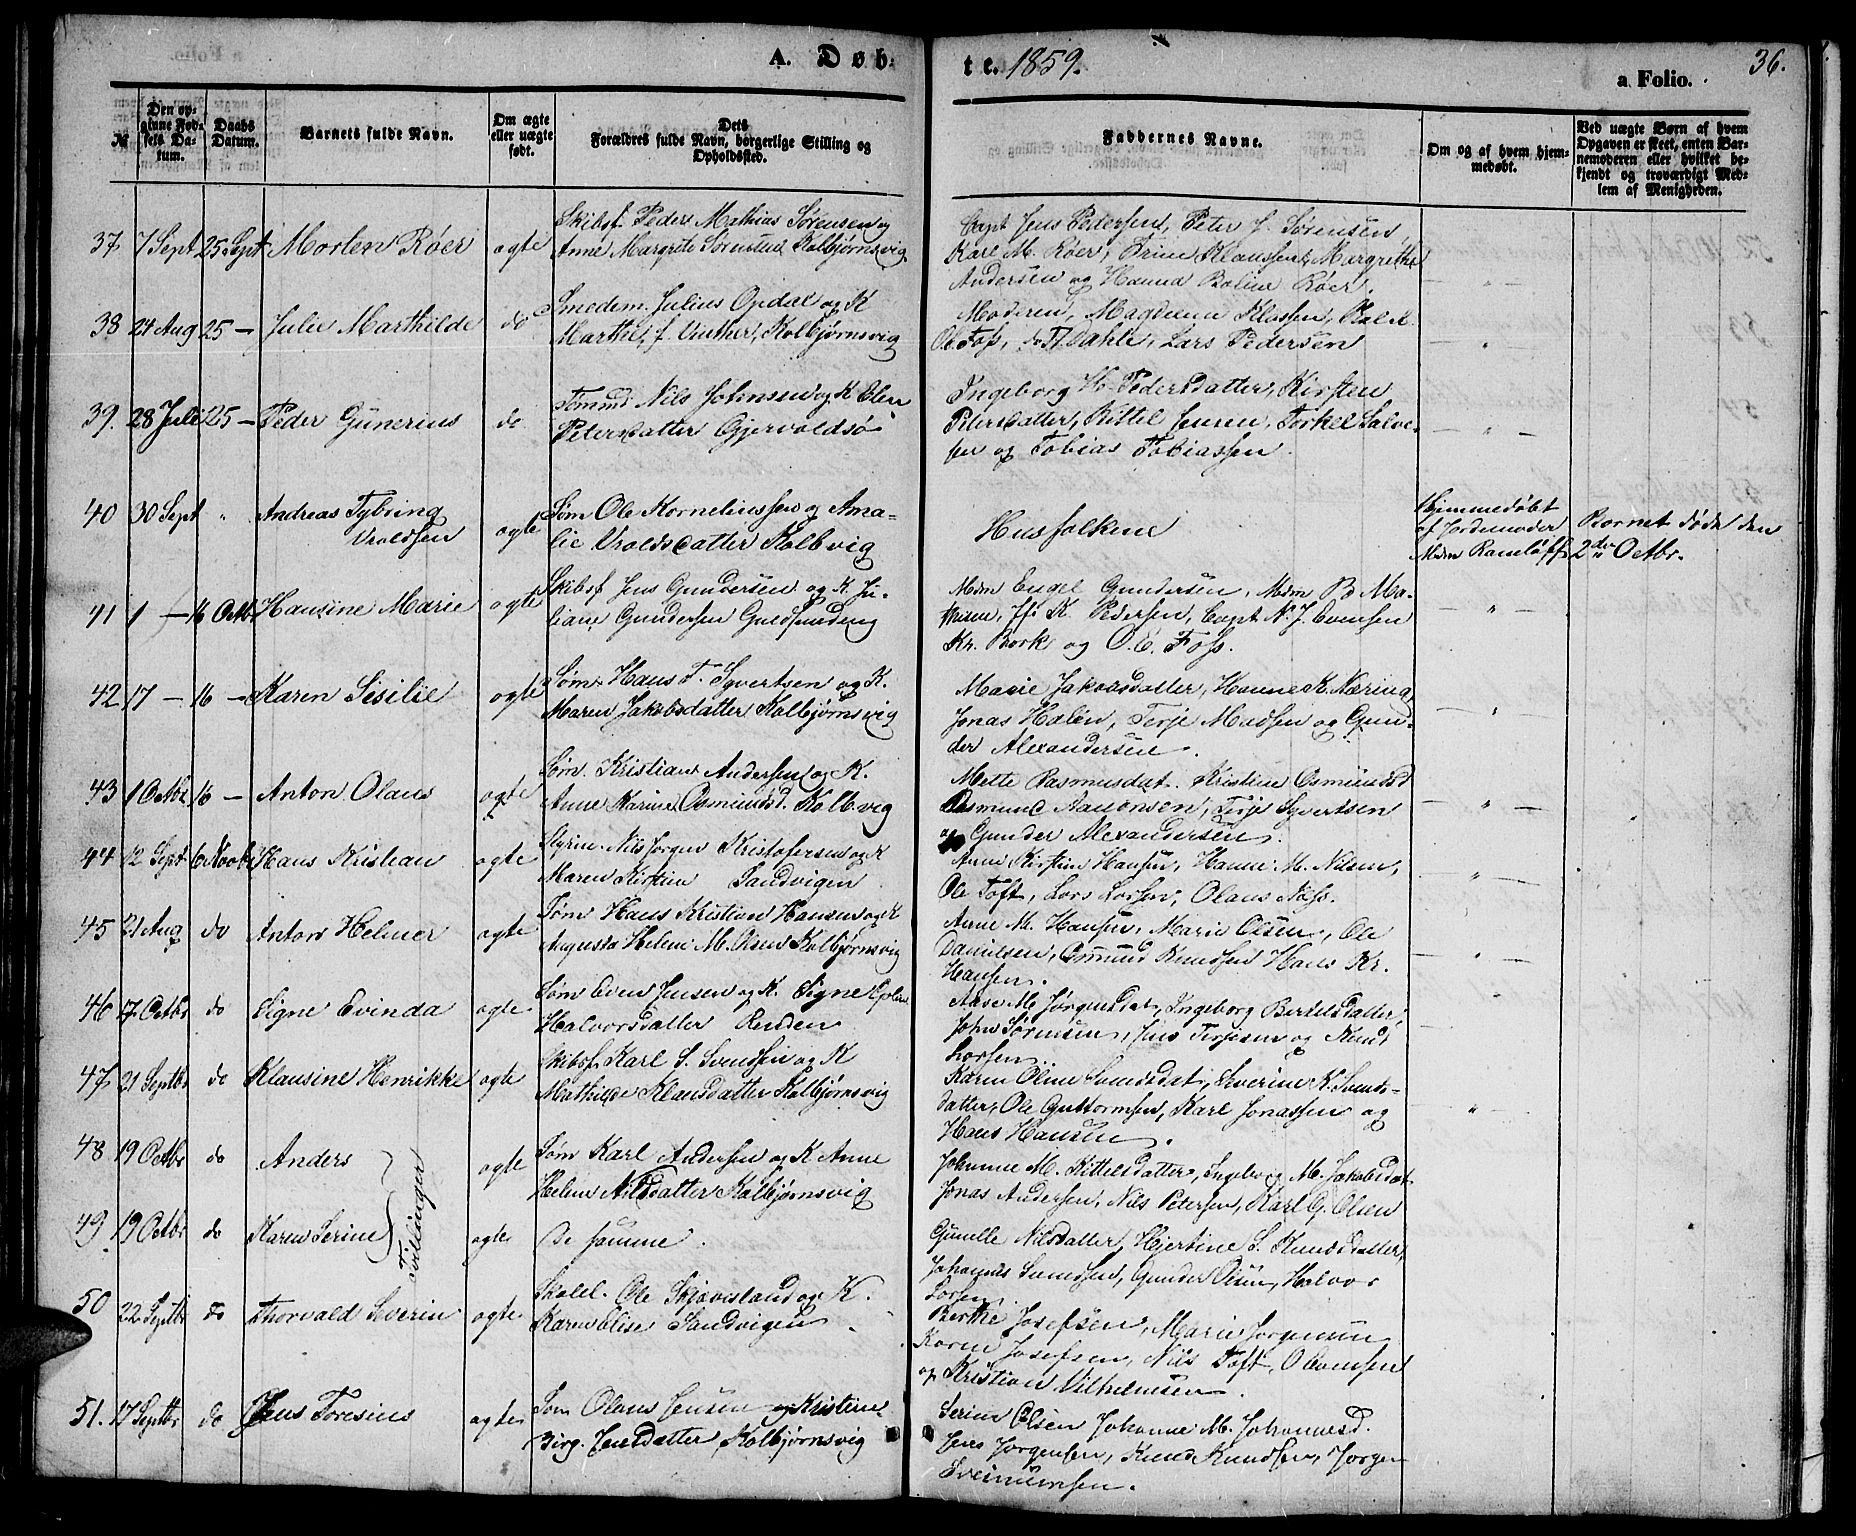 A. Døb-
te. 1859.
a Folio.
36.
№
Den op-
givne Fød-
sels Da-
tum.
Daabs
Datum.
Barnets fulde Navn.
Om ægte
eller uægte
født.
Dets
Forældres fulde Navn, borgerlige Stilling og
Opholdssted.
Faddernes Navne.
Om og af hvem hjem-
medøbt.
Ved uægte Børn af hvem
Opgaven er skeet, enten Bar-
nemoderen eller hvilket be-
kjendt og troværdigt Med-
lem af Menigheden.
37 7 Sept 25 Sept Morten Röer ægte
Skibsf Peder Mathias Sørensen og
Anne Margrete Sørensen Kolbjørnsvig
Capt Jens Pedersen, Peter J. Sørensen,
Karl M. Röer, Trine Klaussen, Margrethe
Andersen og Hanna Boline Röer.
38 24 Aug 25 — Julie Marthilde do
Smedem. Julius Opdal og K
Marthe, f. Vinther, Kolbjørnsvig
Moderen, Magdena Klassen,
Ole Foss, do F. Dahle, Lars Pedersen
39. 28 Juli 25 — Peder Gunerius do
Tømmd Nils Johnsen og K Olene
Petersdatter Gjervoldsø
Ingeborg H. Pedersdatter, Kirsten
Petersdatter, Kittel Jensen, Torkel Salve-
sen og Tobias Tobiassen.
40 30 Sept " Andreas Tybring
Vroldsen ægte
Søm Ole Korneliussen og Ama-
lie Vroldsdatter Kolbvig
Husfolkene
Hjemmedøbt
af Jordemoder
Mdm Ramløff
Barnet døde den
2den Octbr.
41 1 — 16 Octb Hansine Marie ægte
Skibsf Jens Gundersen og K. Ju-
liane Gundersen Guldsmdeng
Mdm Engel Gundersen, Mdm B Ma-
thisen, Jfr K. Pedersen, Capt N. J. Evensen
Kr. Bork og O. E. Foss.
42 17 — 16 — Karen Sisilie ægte
Søm Hans T. Syvertsen og K.
Maren Jakobsdatter Kolbjørnsvig
Marie Jakobsdatter, Hanne K. Næring
Jonas Halén, Terje Madsen og Gun-
der Alexandersen.
43 1 Octbr 16 — Anton Olaus ægte
Søm. Kristian Andersen og K.
Anne Karine Osmundsd. Kolbvig
Mette Rasmusdat. Kristine Osmundsd
Osmund Aanonsen, Terje Syvertsen
og Gunder Alexandersen.
44 12 Sept 6 Novbr Hans Kristian ægte
Styrm. Nils Jørgen Kristofersen og K
Maren Kirstine Sandvigen
Anne Kirstine Hansen, Hanne M. Nilsen,
Ole Toft, Lars Larsen, Olaus Näss.
45 21 Aug do Anton Helmer ægte
Tøm Hans Kristian Hansen og K
Augusta Helene M. Olsen Kolbjørnsvig
Anne M. Hansen, Marie Olsen, Ole
Danielsen, Osmund Knudsen Hans Kr.
Hansen.
46 17 Octbr do Signe Evinda ægte
Søm Even Jensen og K. Signe
Halvorsdatter Renden
Aase M. Jørgensdat, Ingeborg Bertelsdatter,
John Sørensen, Jens Terjesen og Knud
Larsen.
47 21 Septbr do Klausine Henrikke ægte
Skibsf Karl S. Svendsen og K
Mathilde Klausdatter Kolbjørnsvig
Karen Oline Svendsdat, Severine K. Svends-
datter, Ole Guttormsen, Karl Jonassen og
Hans Hansen.
48 19 Octbr do Anders ægte
Søm Karl Andersen og K Anne
Helene Nilsdatter Kolbjørnsvig
Johanne M. Kittelsdatter, Ingeborg M. Jakobsdat.
Jonas Andersen, Nils Petersen, Karl G. Olsen
Tvilinger
49 19 Octbr do Karen Serine ægte
De samme.
Gunille Nilsdatter, Hjertine S. Knudsdatter,
Johannes Svendsen, Gunder Olsen, Halvor
Larsen.
50 22 Septbr do Thorvald Severin ægte
Skolel. Ole Skjævesland og K.
Karen Elise Sandvigen
Berthe Josefsen, Marie Jørgensen
Karen Josefsen, Nils Toft, O Evensen
og Kristian Vilhelmsen.
51. 17 Septbr do Jens Toresius ægte
Søm Olaus Jensen og Kristine
Birg. Jensdatter, Kolbjørnsvig
Serine Olsen Johanne M. Johannesd.
Jens Jørgensen, Knud Knudsen, Jørgen